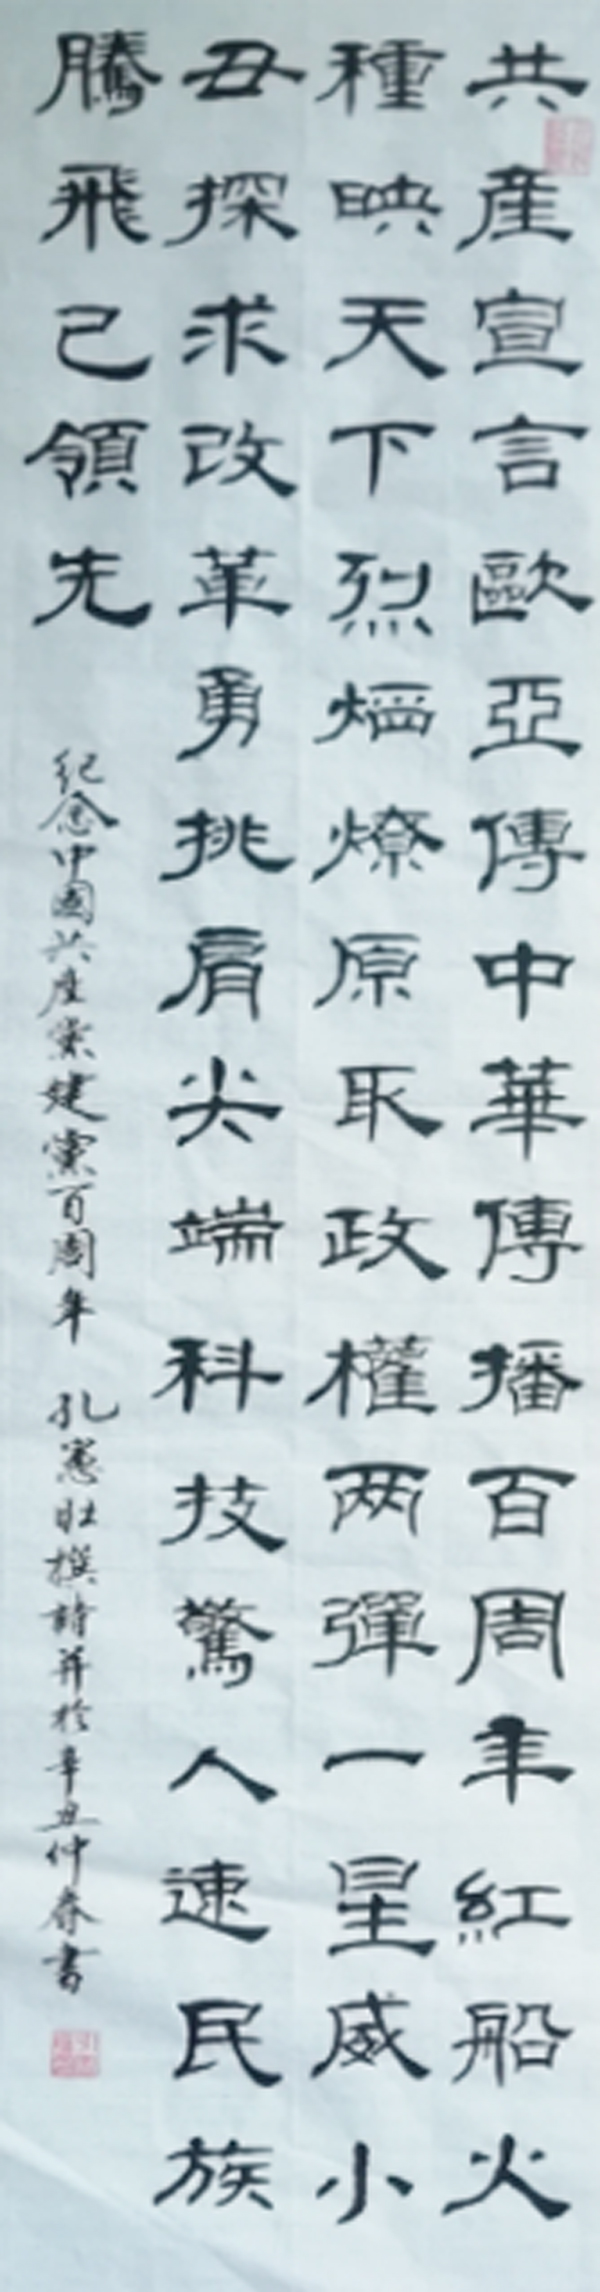 共產宣言歐亞傳中華傳播百周年紅船火
種映天下烈焰燎原取政權两彈一星威小
丑探求改革勇挑肩尖端科技驚人速民族
騰飛已領先
紀念中國共產黨建黨百周年 孔憲壯撰詩并於辛丑仲春書